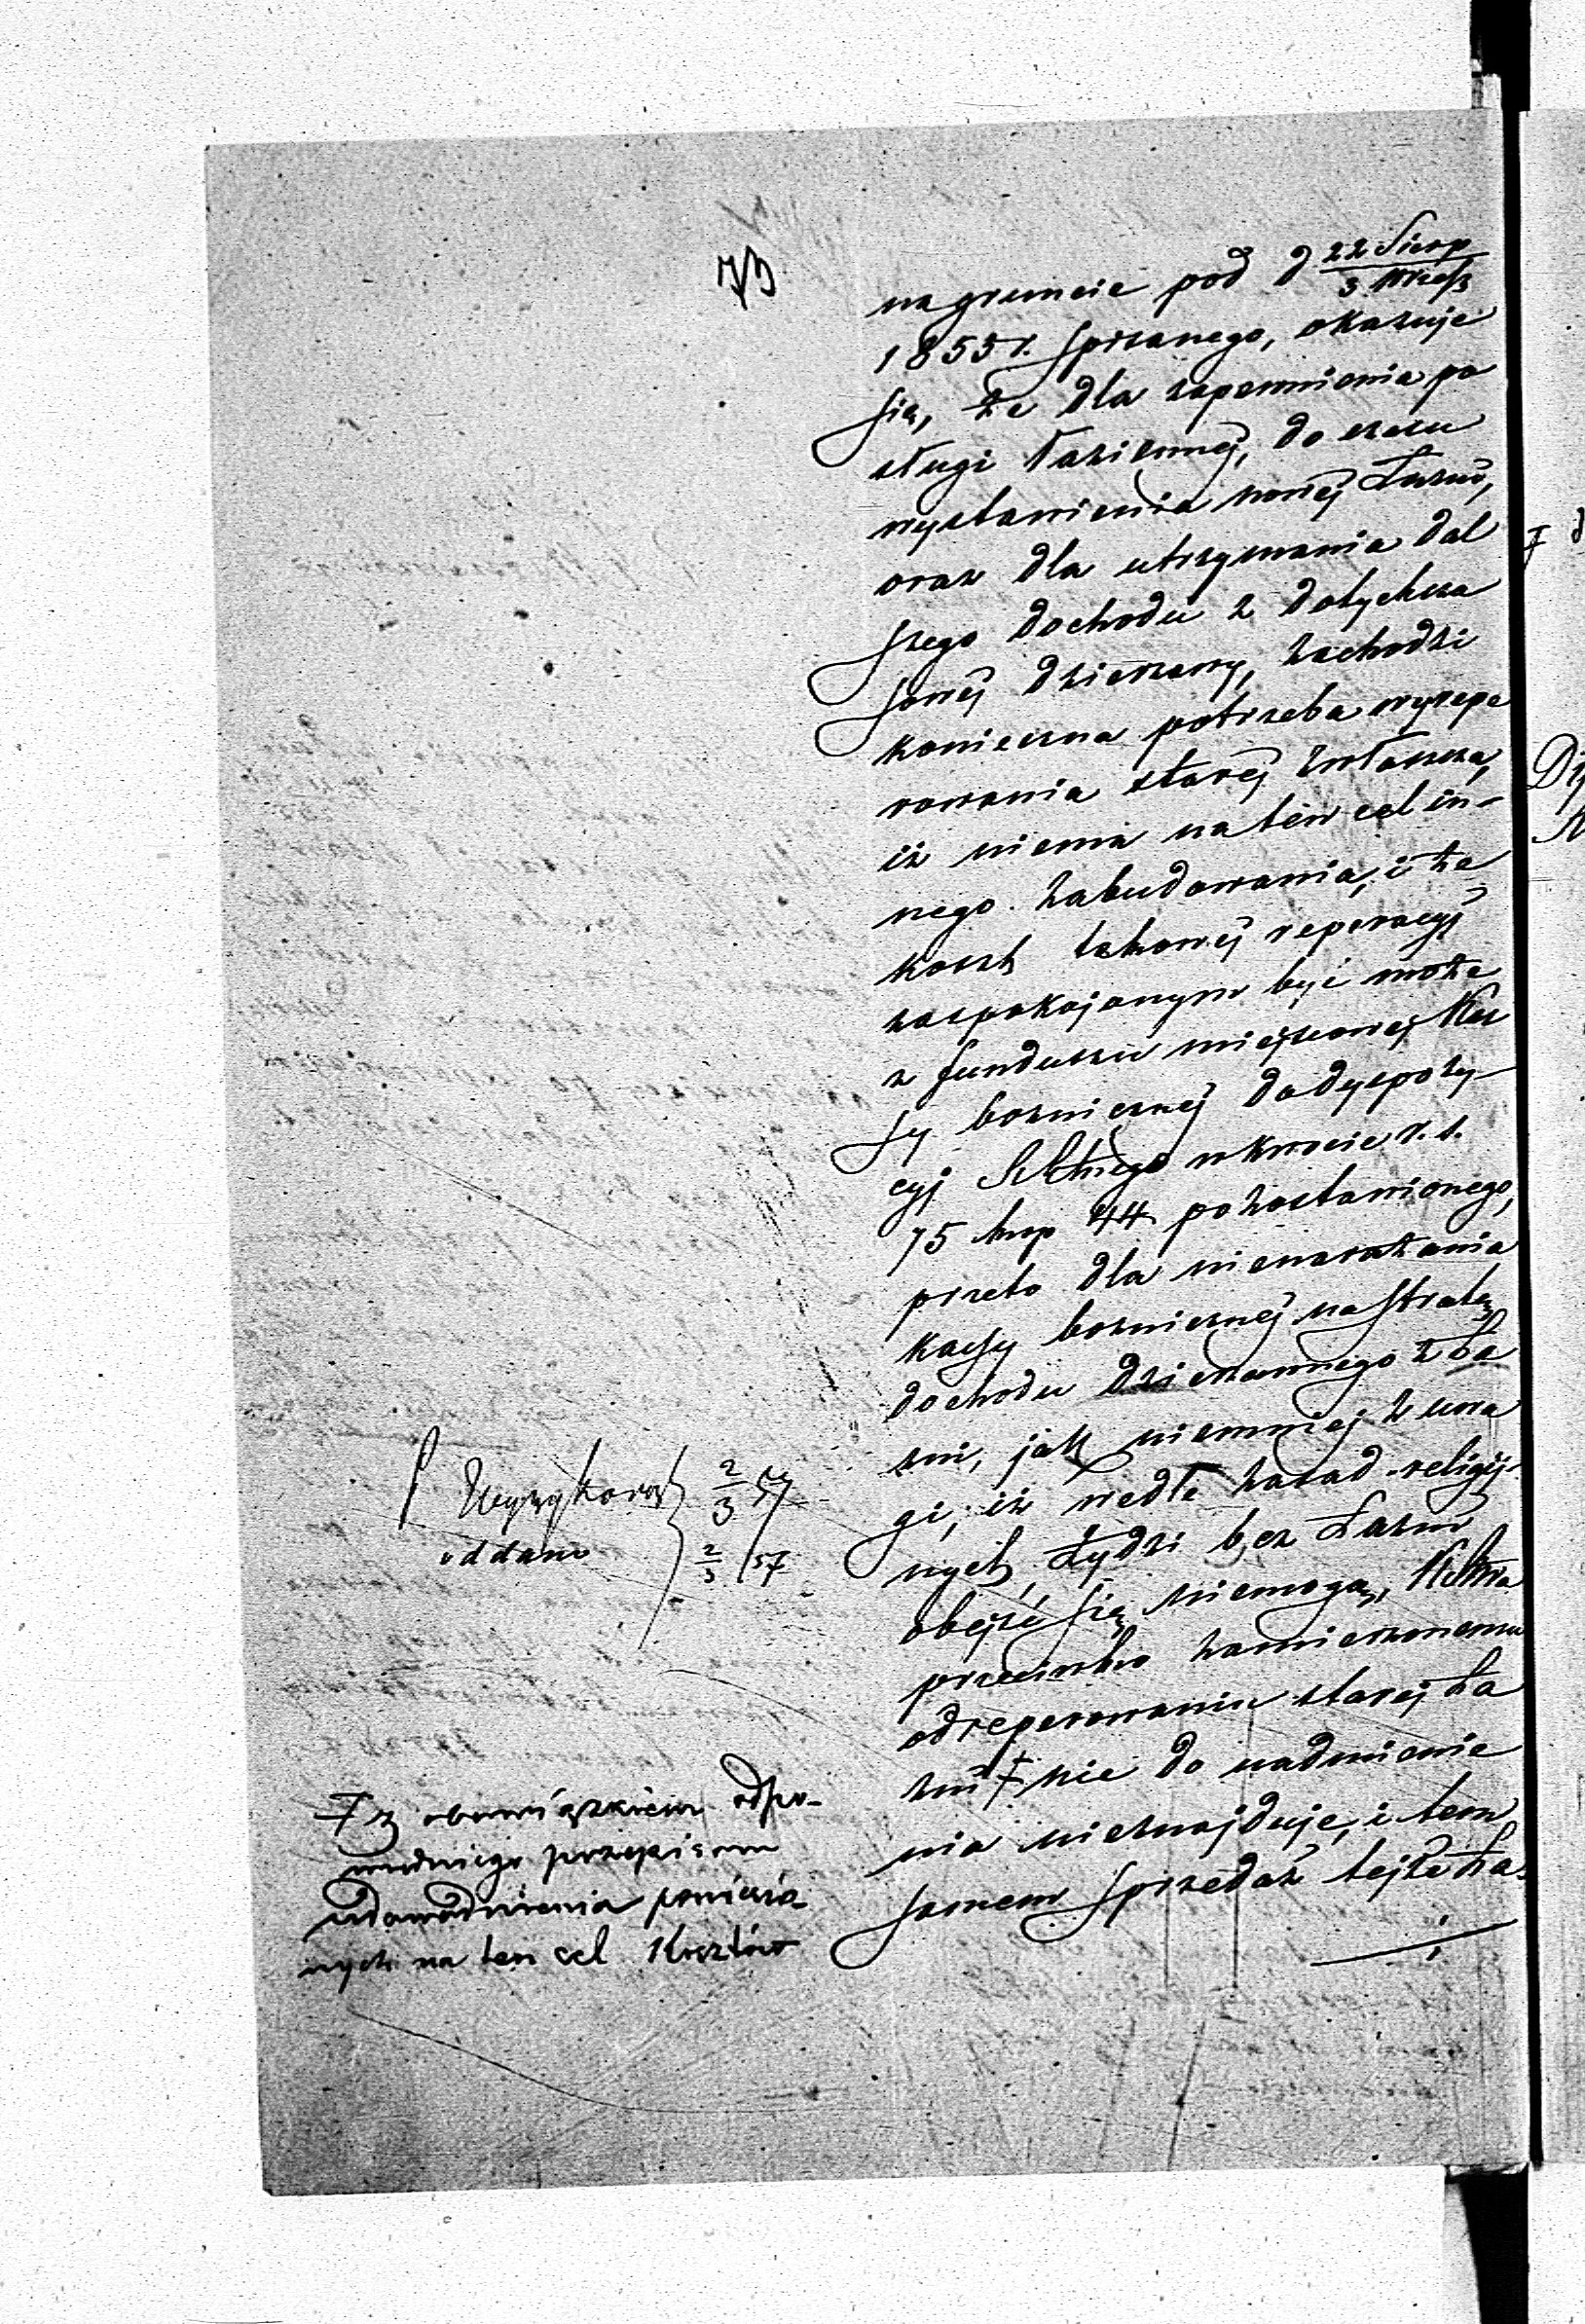 na gruncie pod d 22 Sierp / 3 Wrześ
1855 r. spisanego, okazuje
się, że dla zapewnienia po
sługi łaziennéj, do czasu
wystawienia nowéj Łazni,
oraz dla utrzymania dal
szego dochodu z dotychcza
sowéj dzierzawy, zachodzi
konieczna potrzeba wyrepe
rowania staréj zwłaszcza,
iż niema na ten cel in-
nego zabudowania, i że
koszt takowéj reperacyj
zaspokojonym być może
z funduszu miejscowéj Kas
sy boznicznéj do dyspozy-
cyj w kwocie r. s.
75 kop 44 pozostawionego,
przeto dla nienarażania
kassy bozniczney na stratę
dochodu dzierzawnego z Ła
zni, jak niemniej z uwa
gi, iż wedle zasad religij-
nych, Żydzi bez Łazni
obejść się niemogą,
przeciwko zamierzonemu
odreperowaniu staréj Ła
zni Ŧ nic do nadmienie
nia nieznajduje, i tem
samem sprzedaż tejże Ła-
oddano 2/3 57
Ŧ z obowiązkiem odpo-
wiedniego przepisom
udowodnienia poniesio-
nych na ten cel Kosztów